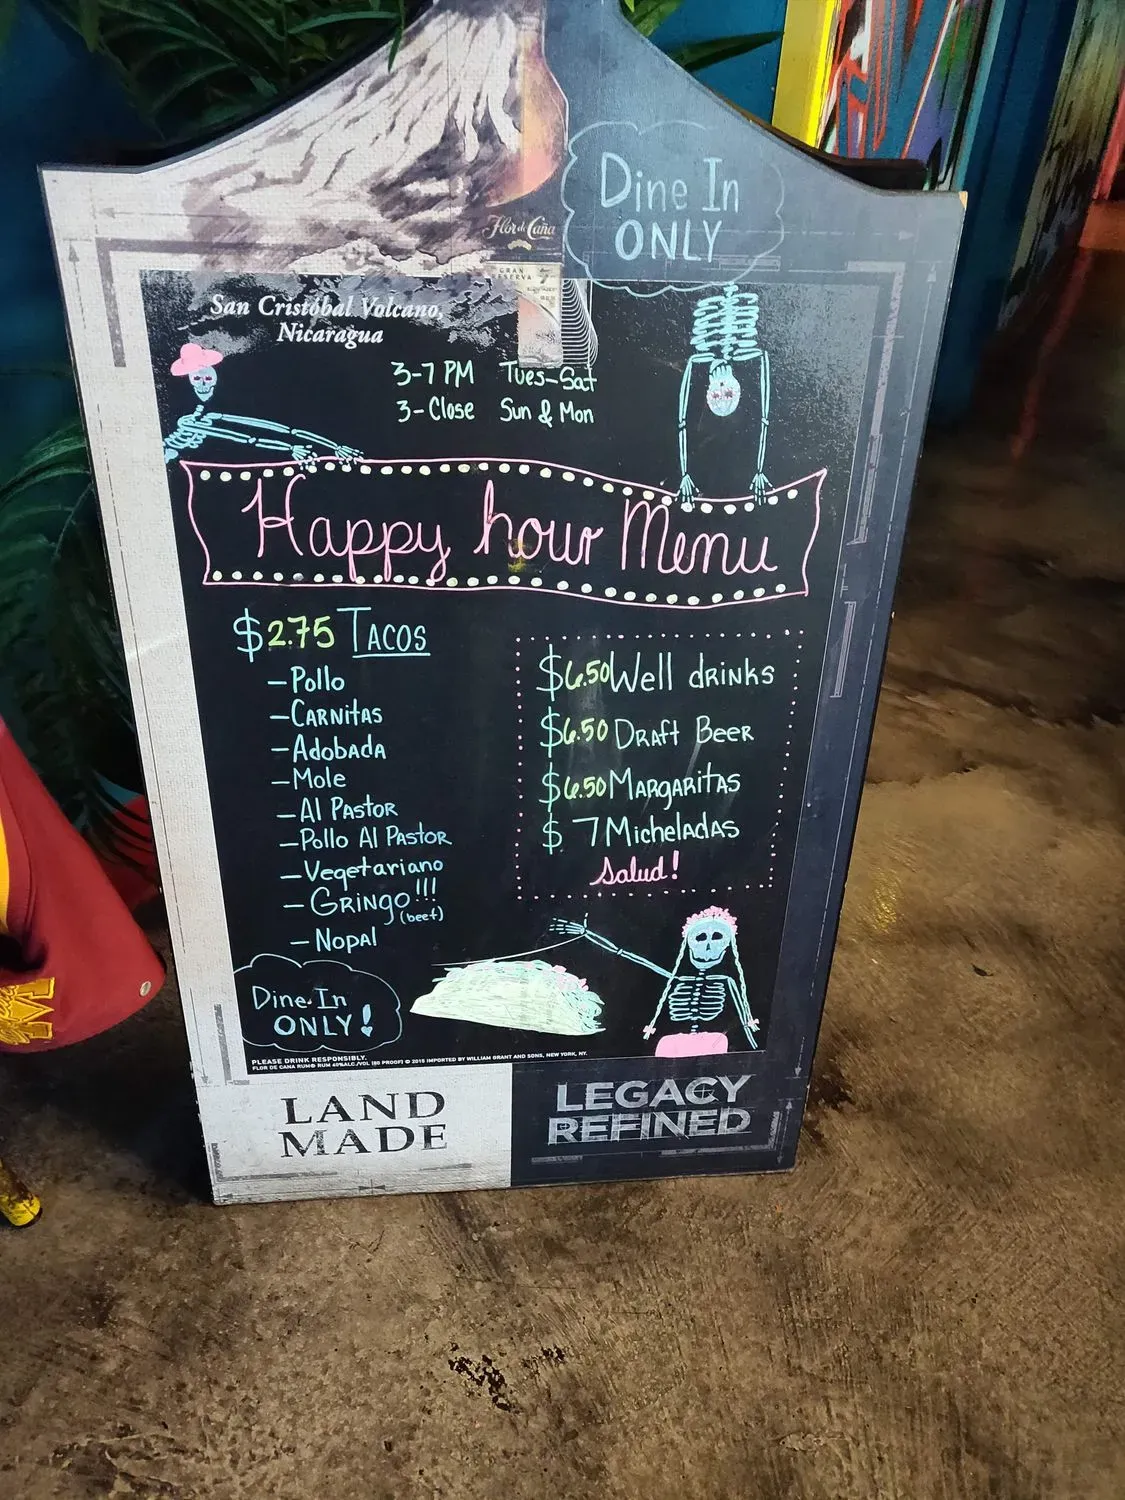 Dine In
ONLY
Flor de Caña
GRAN
RESERVA
7
San Cristóbal Volcano,
Nicaragua
3-7 PM Tues-Sat
3-Close Sun & Mon
Happy hour Menu
$2.75 TACOS
-Pollo
-CARNitAS
-Adobada
-Mole
-Al PAStOR
-Pollo Al PAStOR
-Vegetariano
-GRingo!!!
(beef)
-Nopal
$6.50 Well dRinks
$6.50 DRAft BeeR
$6.50 MARgARitAS
$7 MicheladAS
Salud!
Dine-In
ONLY!
PLEASE DRINK RESPONSIBLY.
FLOR DE CANA RUM® RUM 40%ALC./VOL (80 PROOF) © 2015 IMPORTED BY WILLIAM GRANT AND SONS, NEW YORK, NY.
LAND
MADE
LEGACY
REFINED
M